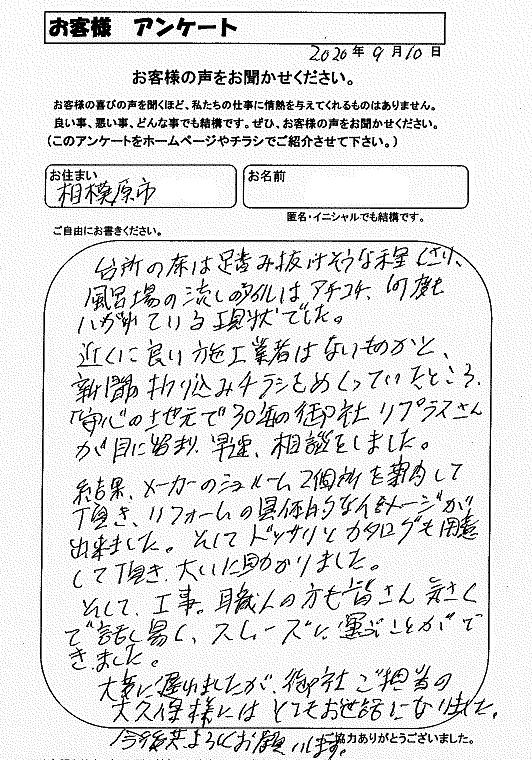 お客様 アンケート
2020年9月10日
お客様の声をお聞かせください。
お客様の喜びの声を聞くほど、私たちの仕事に情熱を与えてくれるものはありません。
良い事、悪い事、どんな事でも結構です。ぜひ、お客様の声をお聞かせください。
(このアンケートをホームページやチラシでご紹介させて下さい。)
お住まい
相模原市
お名前
匿名・イニシャルでも結構です。
ご自由にお書きください。
台所の床は踏み抜けそうな程くさり、
風呂場の流しのタイルはアチコチ、何度も
ハガれている現状でした。
近くに良い施工業者はないものかと、
新聞の折り込みチラシをめくっていたところ、
「安心の地元で30年の御社リプラスさん
が目に留まり、早速、相談をしました。
結果、メーカーのショールーム2個所を案内して
頂き、リフォームの具体的なイメージが
出来ました。そしてドッサリとカタログも用意
して頂き、大いに助かりました。
そして、工事。職人の方も皆さん気さく
で話し易く、スムーズに運ぶことがで
きました。
大変に遅れましたが、御社ご担当の
大久保様にはとてもお世話になりました。
今後共よろしくお願いします。
ご協力ありがとうございました。